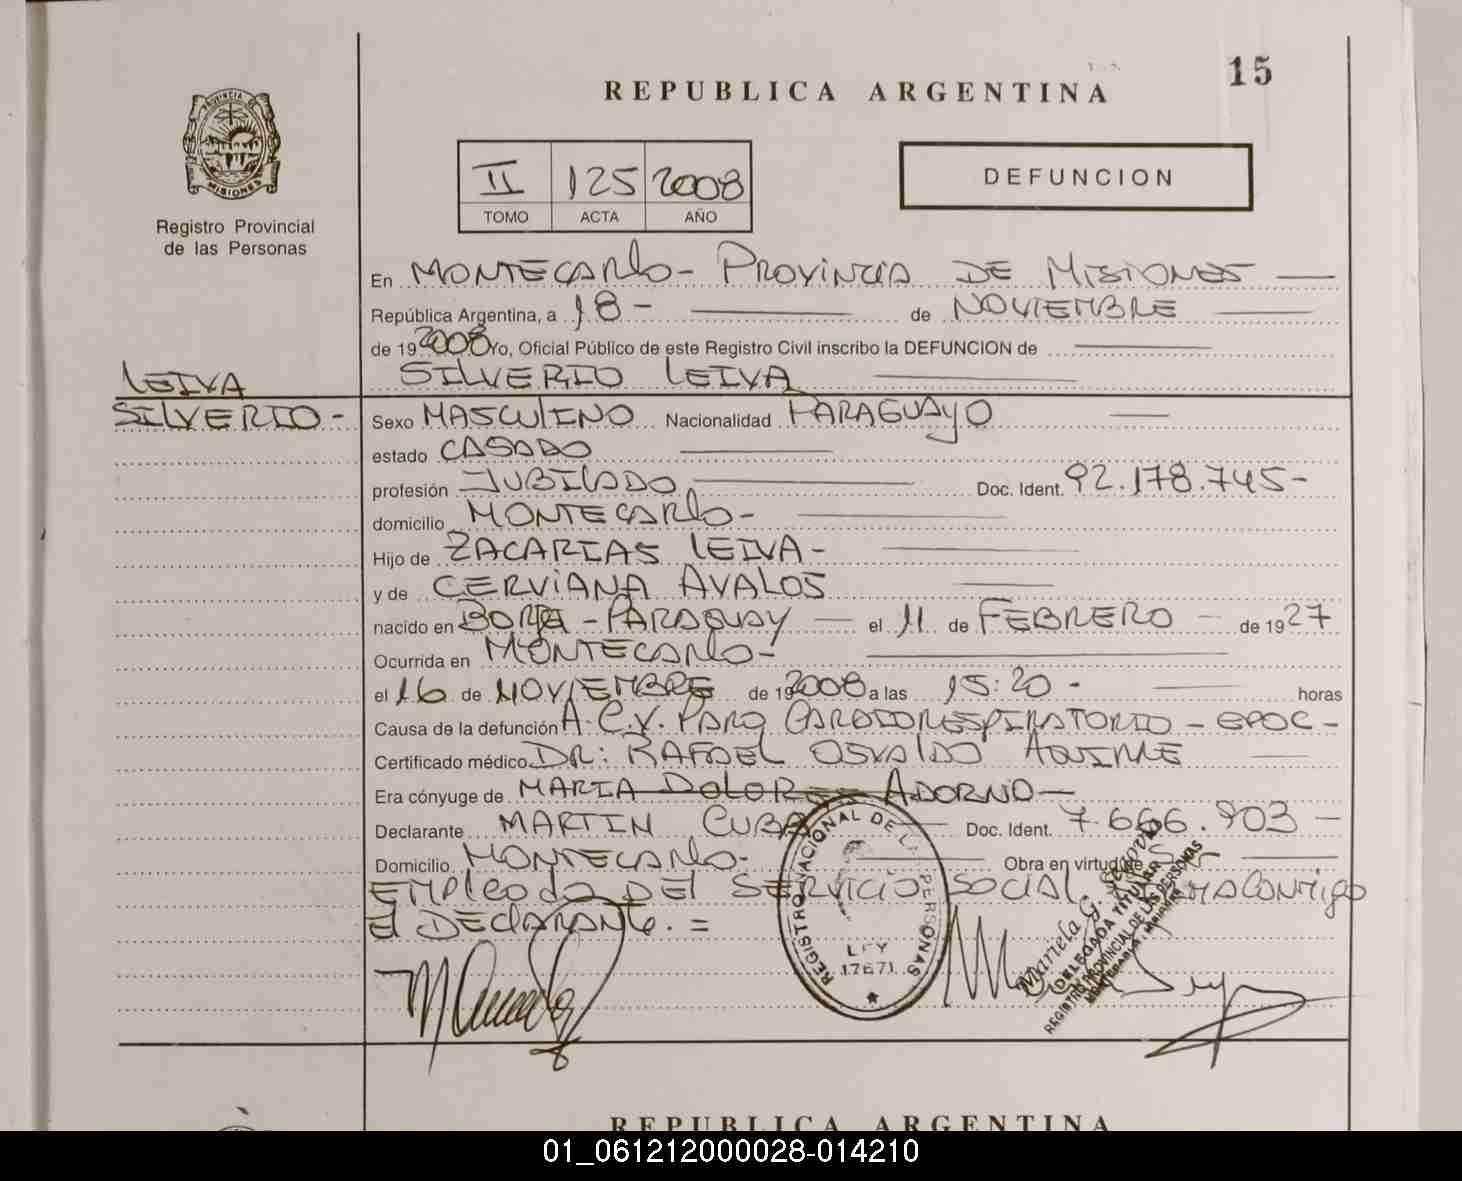 15
REPUBLICA ARGENTINA
PROVINCIA DE
MISIONES
Registro Provincial
de las Personas
II 125 2008
TOMO ACTA AÑO
DEFUNCION
En MONTECARLO - PROVINCIA DE MISIONES
República Argentina, a 18 - de NOVIEMBRE
de 19 2008 Yo, Oficial Público de este Registro Civil inscribo la DEFUNCION de
SILVERIO LEIVA
LEIVA
SILVERIO -
Sexo MASCULINO Nacionalidad PARAGUAYO
estado CASADO
profesión JUBILADO Doc. Ident. 92.178.745-
domicilio MONTECARLO -
Hijo de ZACARIAS LEIVA -
y de CERVIANA AVALOS
nacido en BORJA - PARAGUAY - el 11 de FEBRERO - de 1927
Ocurrida en MONTECARLO -
el 16 de NOVIEMBRE de 19 2008 a las 15:20 - horas
Causa de la defunción A.C.V. PARO CARDIORESPIRATORIO - EPOC -
Certificado médico DR: RAFAEL OSVALDO AGUIRRE
Era cónyuge de MARIA DOLORES ADORNO -
Declarante MARTIN CUBA Doc. Ident. 7.666.903 -
Domicilio MONTECARLO - Obra en virtud de
EMPLEADO DEL SERVICIO SOCIAL. CONMIGO
El DECLARANTE. =
REGISTRO NACIONAL DE LAS PERSONAS
LEY
17671
Mariela G.
DELEGADA TITULAR
REGISTRO PROVINCIAL DE LAS PERSONAS
MONTECARLO - Misiones
REPUBLICA ARGENTINA
01_061212000028-014210